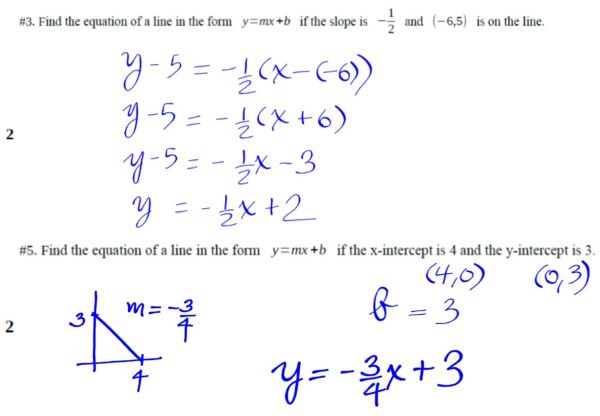 #3. Find the equation of a line in the form y=mx+b if the slope is -1/2 and (−6,5) is on the line.
y - 5 = -1/2(x-(-6))
y - 5 = -1/2(x+6)
2
y - 5 = -1/2x - 3
y = -1/2x + 2
#5. Find the equation of a line in the form y=mx+b if the x-intercept is 4 and the y-intercept is 3.
(4,0) (0,3)
3 m = -3/4 b = 3
2
4 y = -3/4x + 3